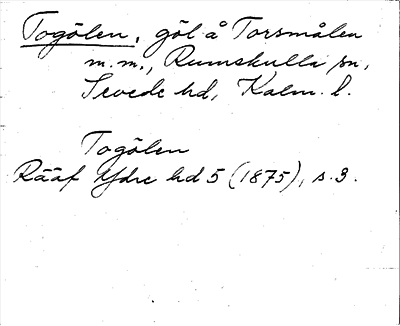 Togölen, göl å Torsmålen
m.m., Rumskulla sn,
Sevede hd, Kalm. l.
Togölen
Rääf Ydre hd 5 (1875), s. 3.